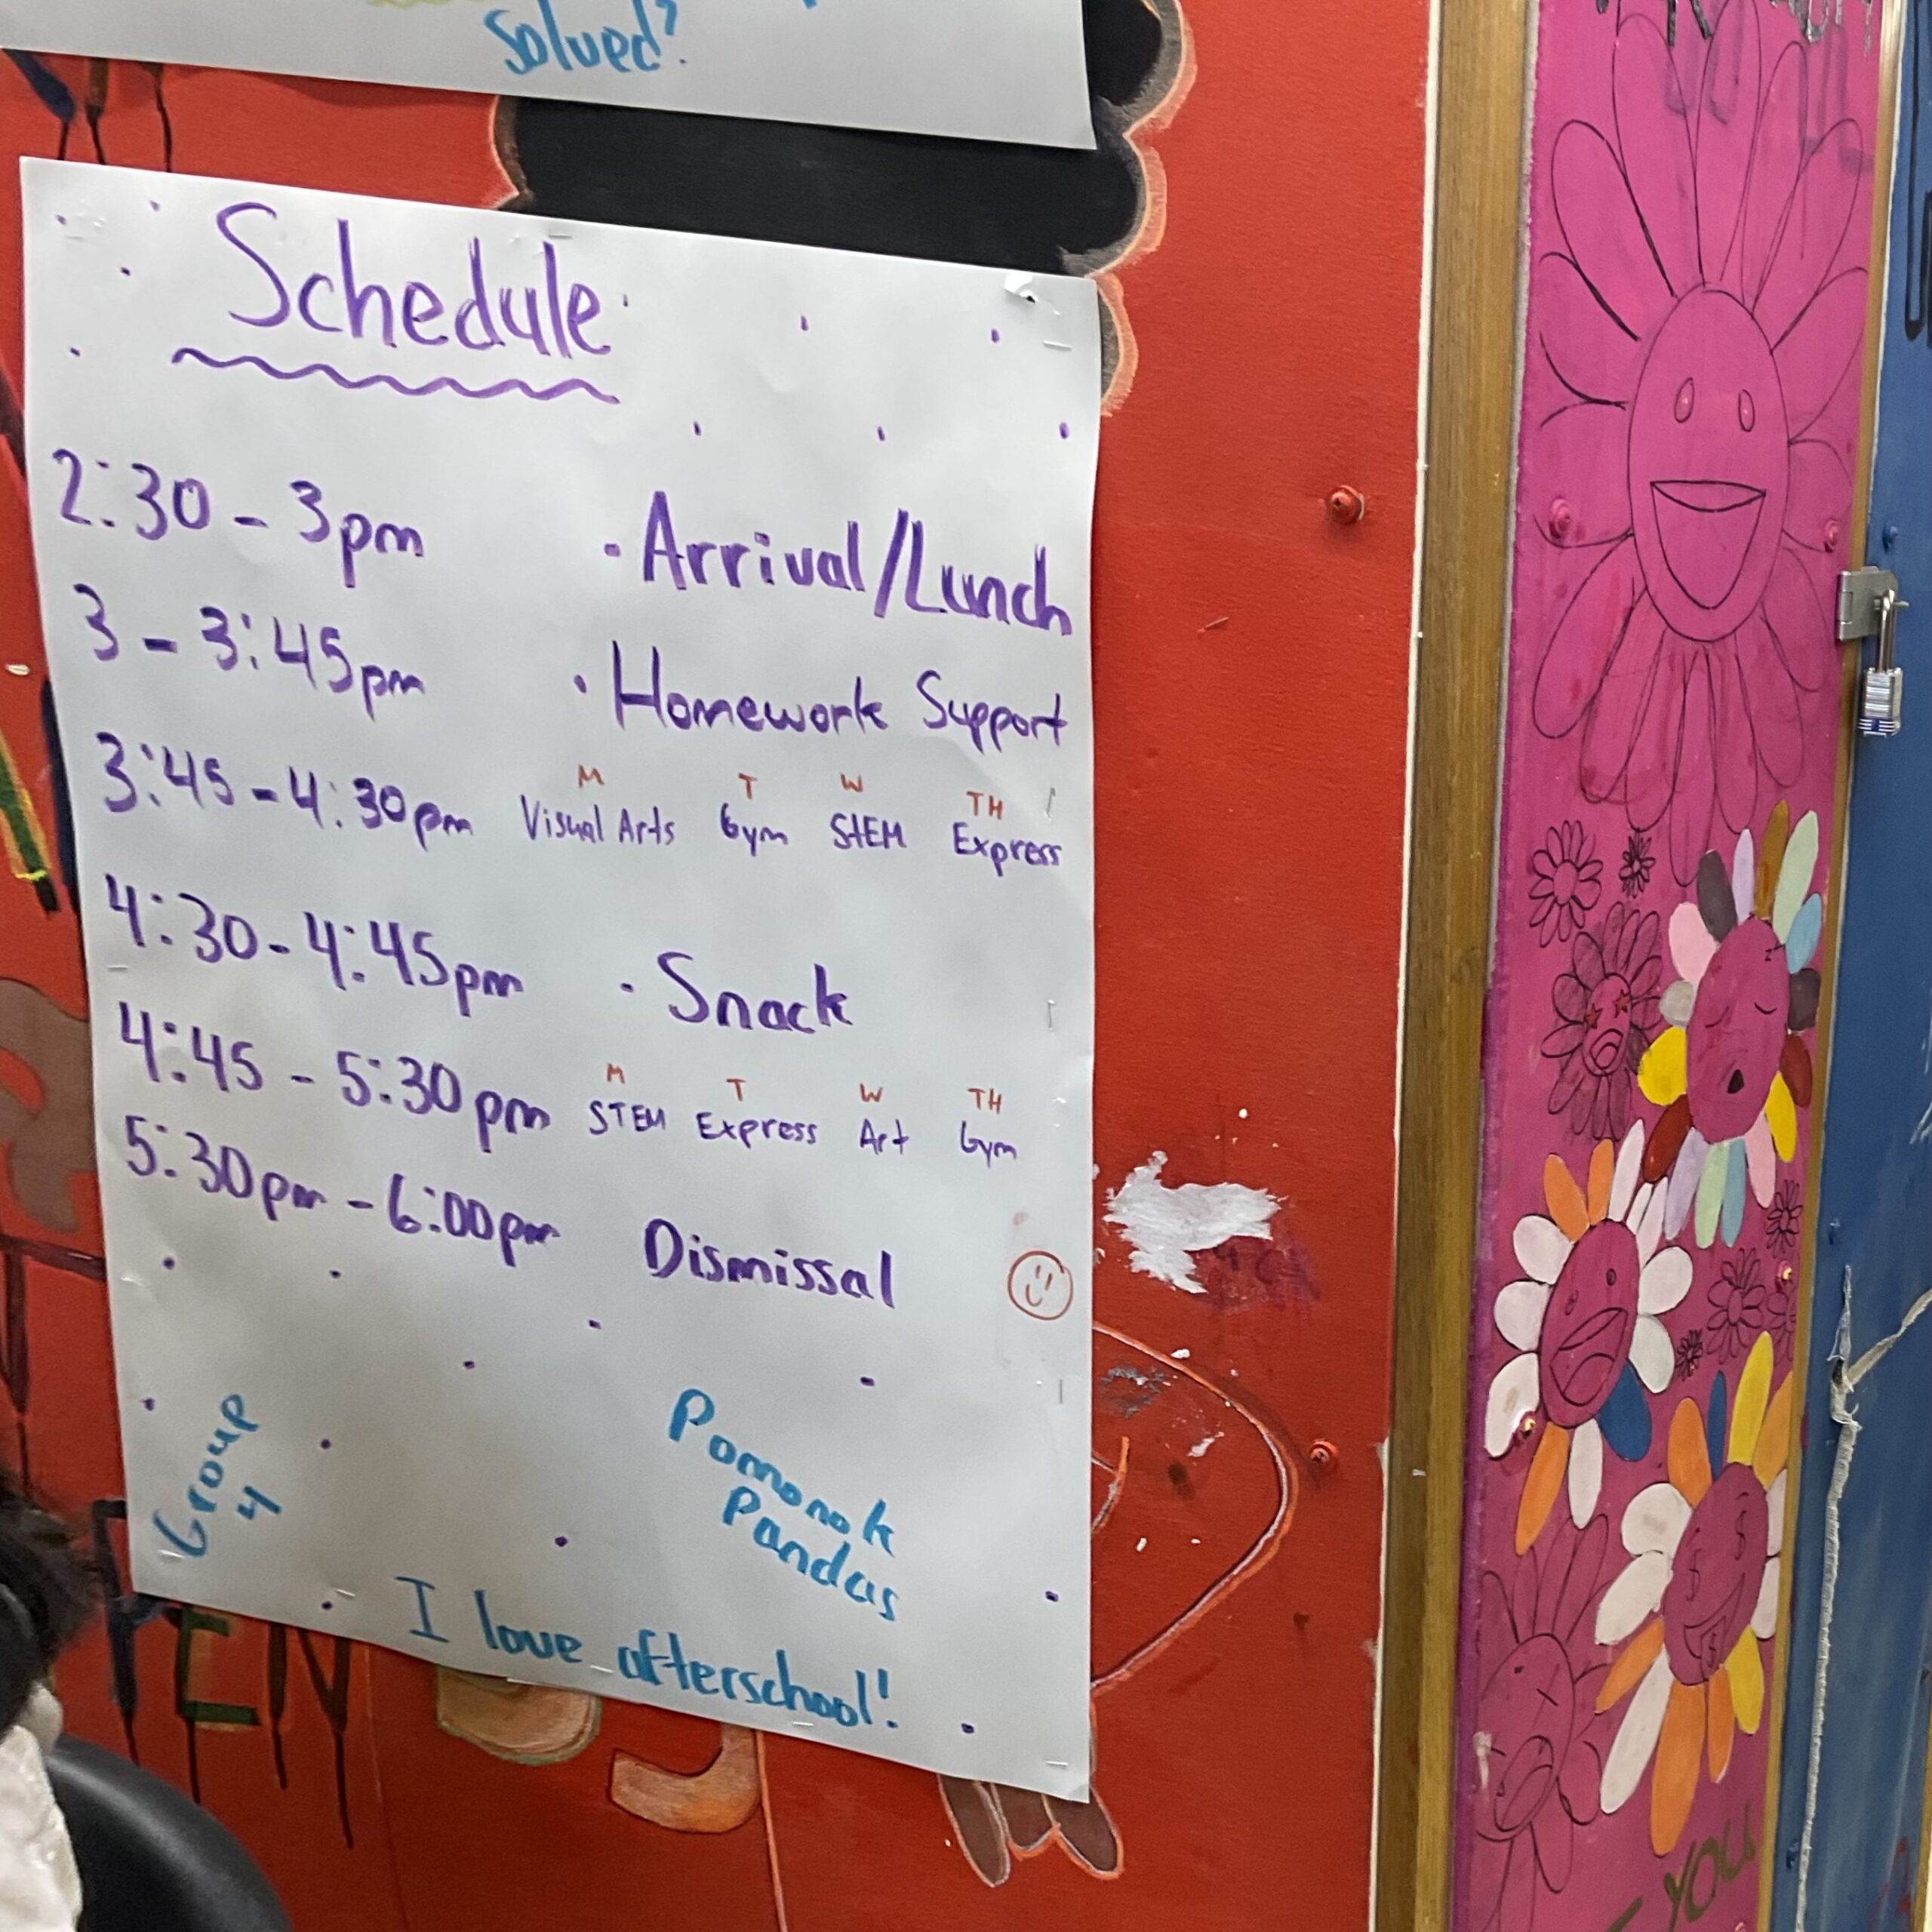 solved?
Schedule
2:30 - 3pm · Arrival/Lunch
3 - 3:45pm · Homework Support
M T W TH
3:45 - 4:30pm Visual Arts Gym STEM Express
4:30 - 4:45pm · Snack
M T W TH
4:45 - 5:30pm STEM Express Art Gym
5:30pm - 6:00pm Dismissal
Group
4
Pomonok
Pandas
I love afterschool!
YOU